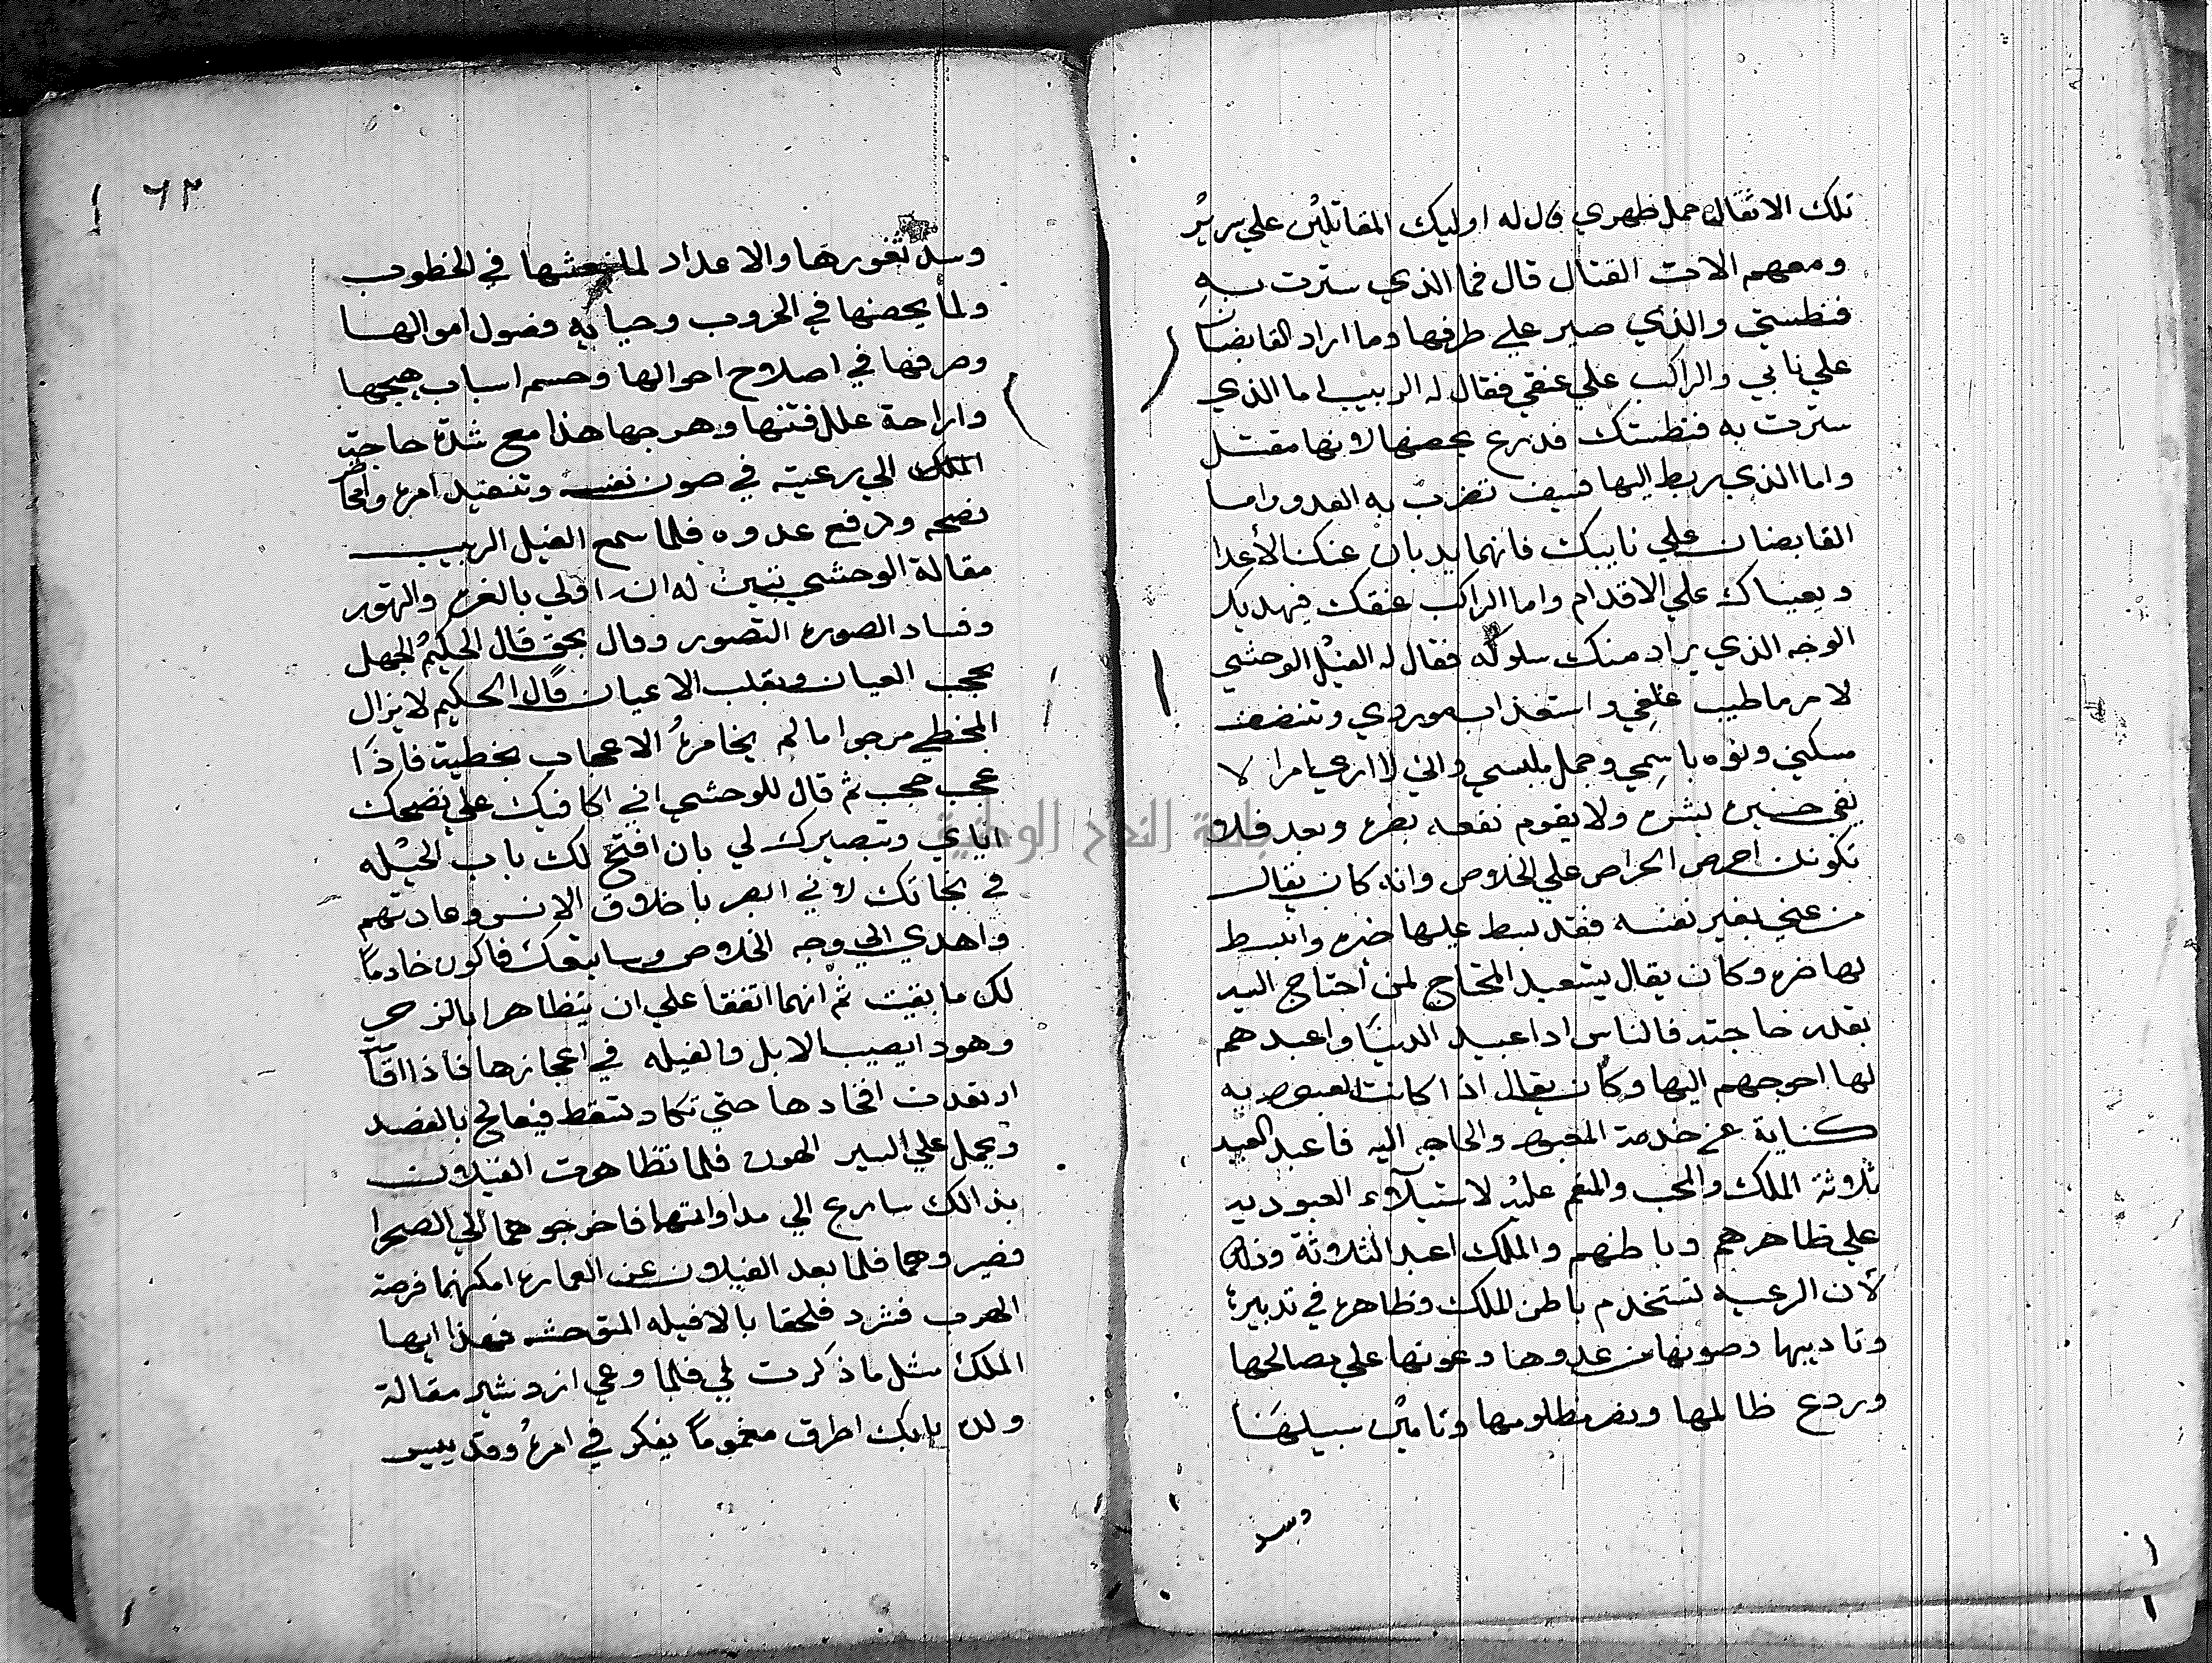 تلك الاثقال حمل ظهري قال له اوليك المقاتلين علي سرير
ومعهم الات القتال قال فما الذي سترت به
فنطستي والذي صير علي طرفها وما اراد القابضان
علي نابي والراكب علي عنقي فقال له الربيب اما الذي
سترت به فنطستك فدرع يحصنها لانها مقتل
واما الذي ربط اليها فسيف تضرب به العدو واما
القابضان علي نابيك فانهما يدبان عنك الأعدا
ويعيناك علي الاقدام واما الراكب عنقك فيهديك
الوجه الذي يراد منك سلوكه فقال له الفيل الوحشي
لامر ما طيب علفي واستعذاب موردي وتنضف
مسكني ونوه باسمي وجمل ملبسي واني لا اري امرا لا
يفي خيره بشره ولا يقوم نفعه بضره وبعد فلا
تكونن احرص الحراص علي الخلاص وانه كان يقال
من عني بغير نفسه فقد بسط عليها ضره وانبسط
لها ضره وكان يقال يستعبد المحتاج لمن احتاج اليه
بقدر حاجته فالناس اذا عبيد الدنيا واعبدهم
لها احوجهم اليها وكان يقال اذا كانت العبوديه
كناية عن خدمة المعبود والحاجه اليه فاعبد العبيد
ثلاثة الملك والمحب والمنعم عليه لاستيلآء العبوديه
علي ظاهرهم وباطنهم والملك اعبد الثلاثة وذلك
لان الرعيه تستخدم باطن الملك وظاهره في تدبيرها
وتاديبها وصونها من عدوها وعونها علي مصالحها
وردع ظالمها ونصر مظلومها وتامين سبيلها
وسد
٦٣
وسد ثغورها والاعداد لما ينعشها في الخطوب
ولما يحصنها في الحروب وجبايه فضول اموالها
وصرفها في اصلاح احوالها وحسم اسباب هيجها
وازاحة علل فتنها وهرجها هذا مع شدة حاجة
الملك الي رعيته في صون نفسه وتنفيذ امره
نصحه ودفع عدوه فلما سمع الفيل الربيب
مقالة الوحشي تبين له انه اولي بالغره والتهور
وفساد الصوره التصور وقال بحق قال الحكيم الجهل
يحجب العيان ويقلب الاعيان قال الحكيم لا يزال
المخطي مرجوا ما لم يخامره الاعجاب بخطيته فاذا
عجب حجب ثم قال للوحشي اني اكافيك علي نصحك
اياي وتبصيرك لي بان افتح لك باب الحيله
في نجاتك لاني ابصر باخلاق الانس وعادتهم
واهدي الي وجه الخلاص وسابقك فاكون خادماً
لك ما بقيت ثم انهما اتفقا علي ان يتظاهرا
وهو دا يصيب الابل والفيله في اعجازها فاذا اقامت
ارتعدت افخادها حتي تكاد تسقط فيعالج بالفصد
ويحمل علي السير الهون فلما تظاهرت الفيلان
بذالك سارع الي مداواتهما فاخرجوهما الي الصحرا
فصيروهما فلما بعد الفيلان عن العماره امكنهما فرصة
الهرب فشرد فلحقا بالافيله المتوحشه فهذا ايها
الملك مثل ما ذكرت لي فلما وعي ازدشير مقالة
ولده بابك اطرق مغموماً يفكر في امره وقد يسر